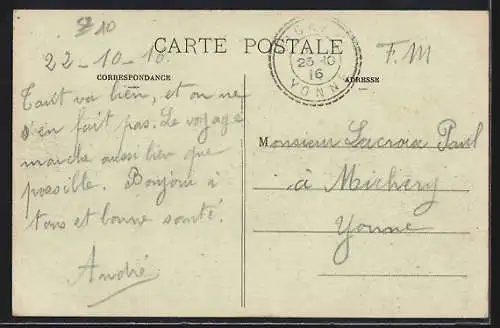 10
22-10-16
CARTE POSTALE
F. M
CORRESPONDANCE
ADRESSE
23-10
16
YONNE
Tout va bien, et on ne
s'en fait pas. Le voyage
marche aussi bien que
possible. Bonjour à
tous et bonne santé.
André
Monsieur Lacroix Paul
à Michery
Yonne